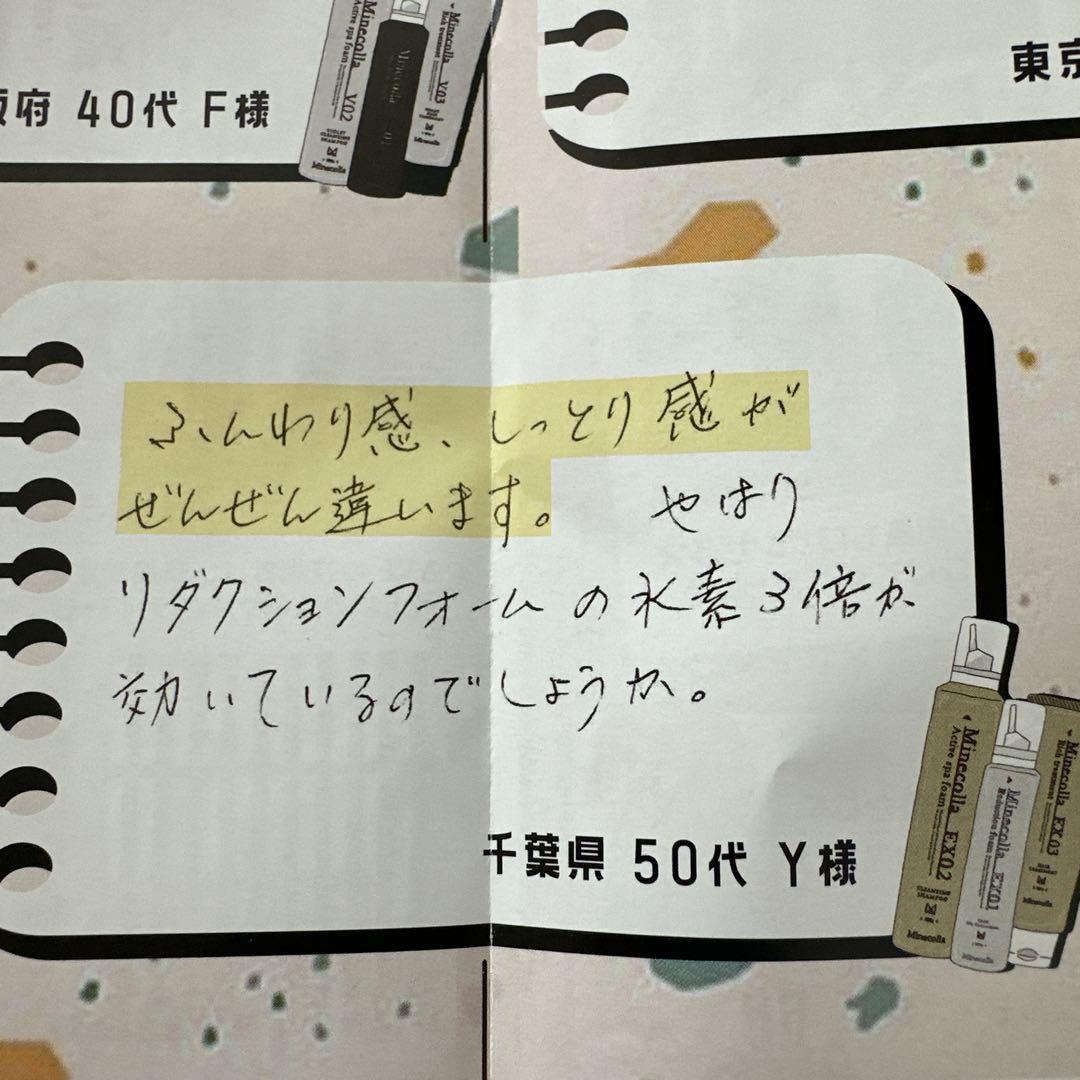 府 40代 F様
Minecolla V02
Active spa foam
VIOLET
CLEANSING
SHAMPOO
Minecolla
Minecolla V03
Rich treatment
東京
ふんわり感、しっとり感が
ぜんぜん違います。 やはり
リダクションフォームの水素3倍が
効いているのでしょうか。
千葉県 50代 Y様
Minecolla EX02
Active spa foam
CLEANSING
SHAMPOO
Minecolla
Minecolla EX01
Reduction foam
Minecolla
Minecolla EX03
Rich treatment
HAIR
TREATMENT
Minecolla